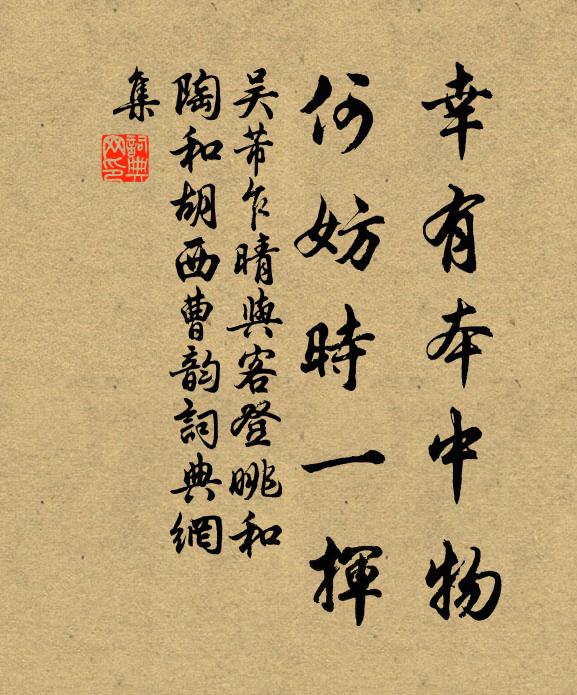 幸有本中物
何妨時一揮
吳芾乍晴與客登眺和
陶和胡西曹韵詞典網
集
詞典网印